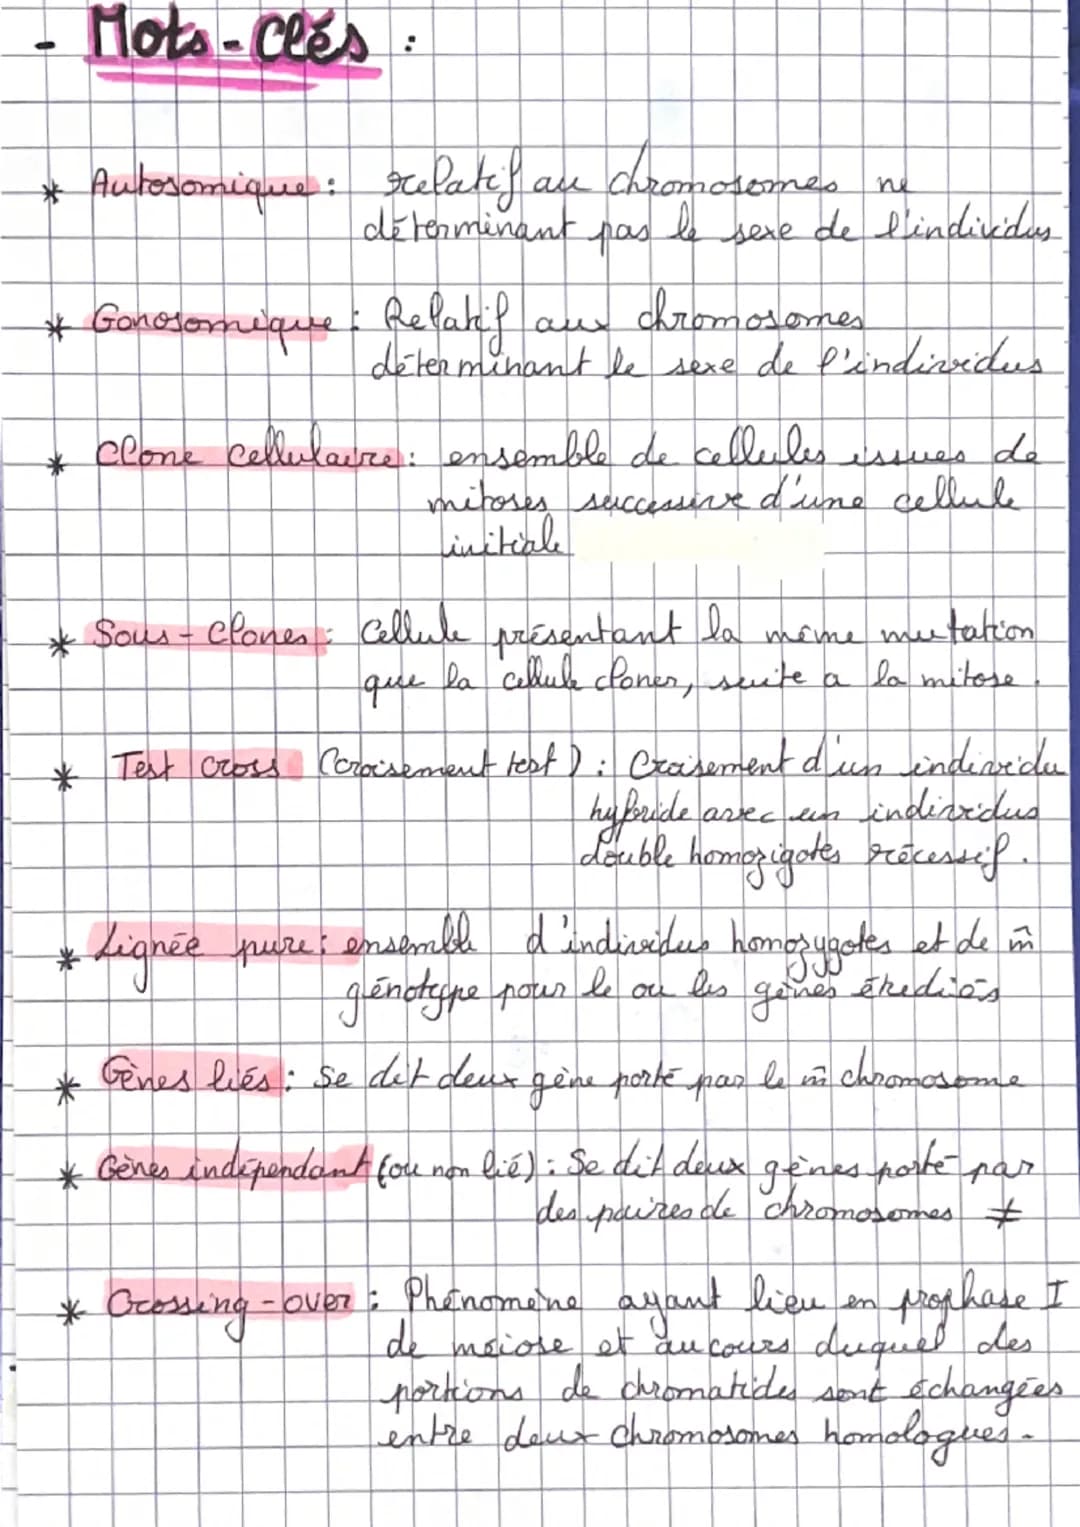 - Mots-Clés :
* Autosomique : relatif au chromosomes ne
déterminant pas le sexe de l'individus
* Gonosomique : Relatif aux chromosomes
déterminant le sexe de l'individus
* Clone cellulaire : ensemble de cellules issues de
mitoses successive d'une cellule
initiale
* Sous-Clones : Cellule présentant la même mutation
que la cellule cloner, suite a la mitose.
* Test cross (croisement test) : Croisement d'un individu
hybride avec un individus
double homozigotes récessif.
* Lignée pure : ensemble d'individus homozygotes et de m̂
génotype pour le ou les gènes étudiés
* Gènes liés : Se dit deux gène porté par le m̂ chromosome
* Gènes indépendant (ou non lié) : Se dit deux gènes porté par
des paires de chromosomes ≠
* Crossing-over : Phénomène ayant lieu en prophase I
de méiose et au cours duquel des
portions de chromatides sont échangées
entre deux chromosomes homologues.